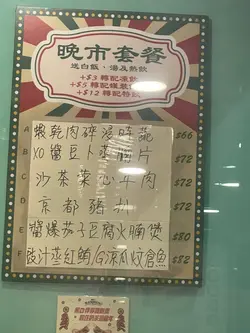 晚市套餐
送白飯、湯及熱飲
+$3 轉配凍飲
+$5 轉配
+$12 轉配特飲
A 蝦乾肉碎浸時蔬 $66
B XO醬豆卜蒸腩片 $72
C 沙茶菜心牛肉 $72
D 京都豬扒 $72
E 醬爆茄子豆腐火腩煲 $80
F 豉汁蒸紅鮋 / 涼瓜炆倉魚 $82